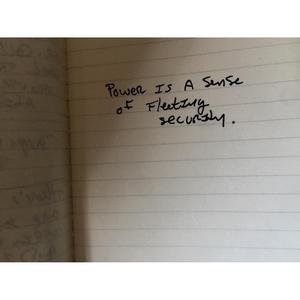 Power Is A Sense
of Fleeting
security.